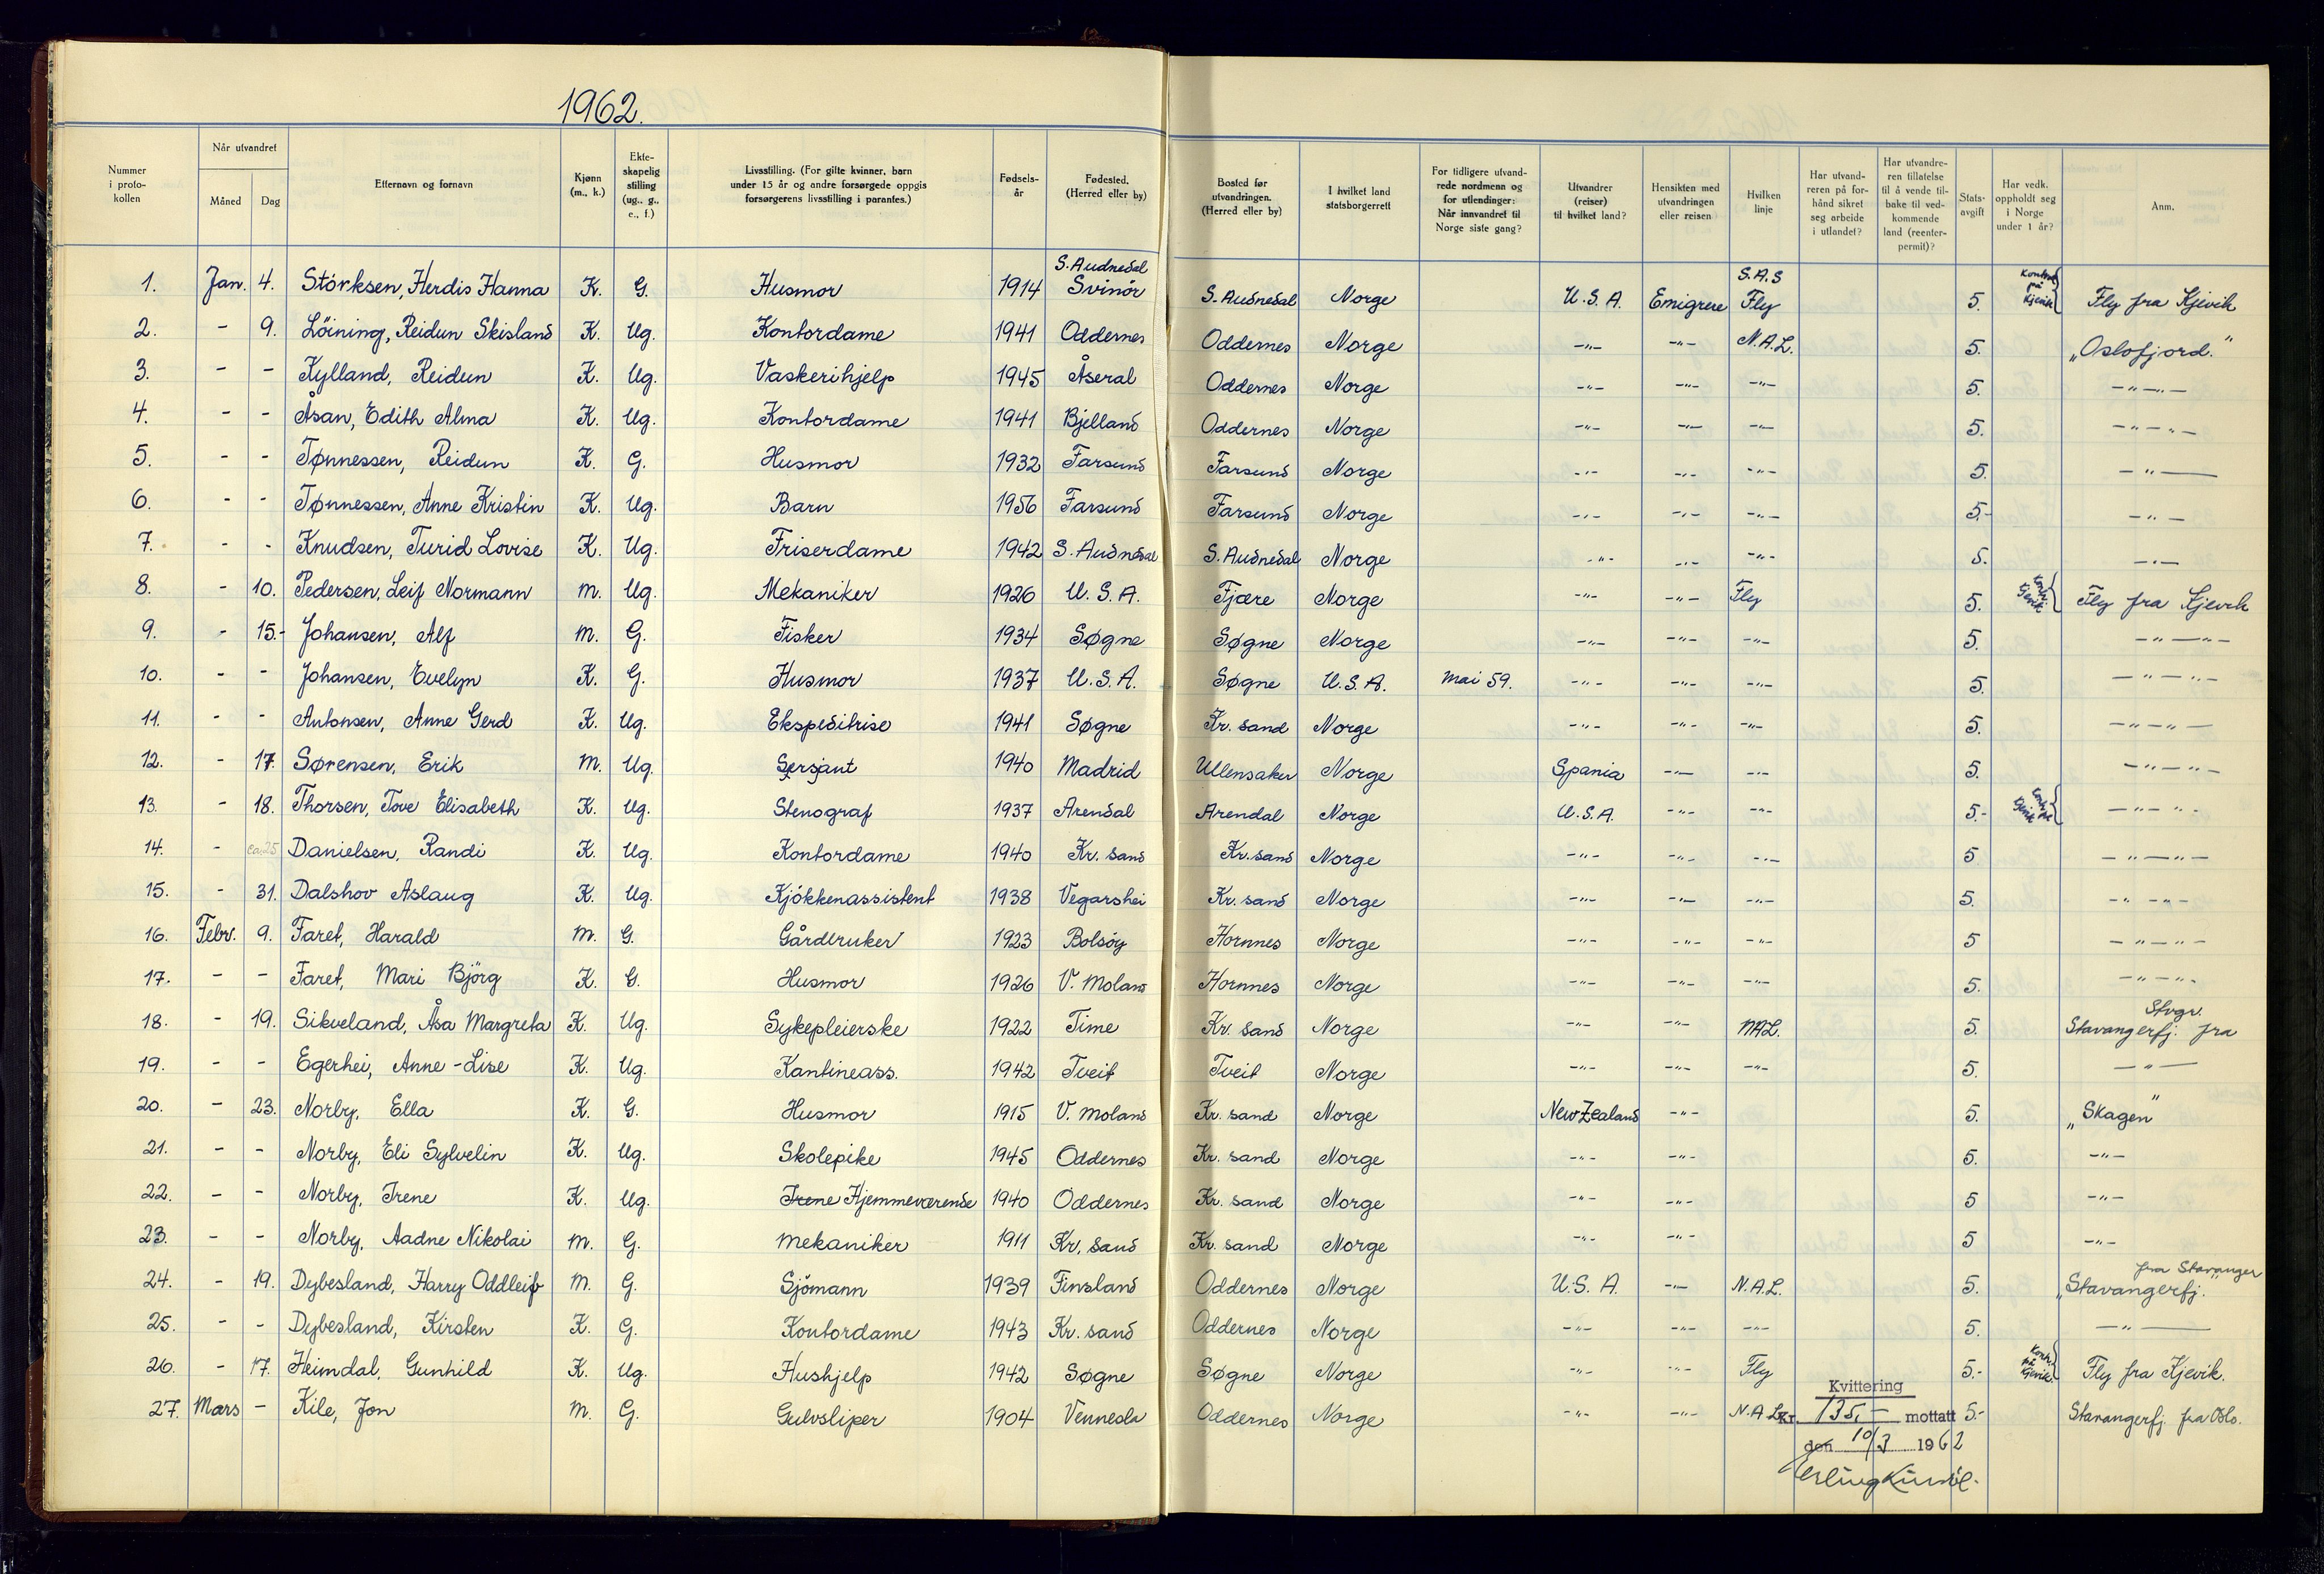 1962.
Nummer i proto-kollen | Når utvandret Måned | Dag | Etternavn og fornavn | Kjønn (m., k.) | Ekte-skapelig stilling (ug., g., e., f.) | Livsstilling. (For gifte kvinner, barn under 15 år og andre forsørgede oppgis forsørgerens livsstilling i parantes.) | Fødsels-år | Fødested. (Herred eller by) | Bosted før utvandringen. (Herred eller by) | I hvilket land statsborgerrett | For tidligere utvand-rede nordmenn og for utlendinger: Når innvandret til Norge siste gang? | Utvandrer (reiser) til hvilket land? | Hensikten med utvandringen eller reisen | Hvilken linje | Har utvand-reren på for-hånd sikret seg arbeide i utlandet? | Har utvandre-ren tillatelse til å vende til-bake til ved-kommende land (reenter-permit)? | Stats-avgift | Har vedk. oppholdt seg i Norge under 1 år? | Anm.
1. Jan. 4. Störksen, Herdis Hanna K. G. Husmor 1914 S. Audnedal Svinör S. Audnedal Norge U.S.A. Emigrere S.A.S Fly 5. på Kjevik Fly fra Kjevik
2. - 9. Löining, Reidun Skisland K. Ug. Kontordame 1941 Oddernes Oddernes Norge -"- -"- N.A.L. 5. „Oslofjord."
3. - - Kylland, Reidun K. Ug. Vaskerihjelp 1945 Åseral Oddernes Norge -"- -"- -"- 5. -"-"-
4. - - Åsan, Edith Alma K. Ug. Kontordame 1941 Bjelland Oddernes Norge -"- -"- -"- 5. -"-"-
5. - - Tønnessen, Reidun K. G. Husmor 1932 Farsund Farsund Norge -"- -"- -"- 5. -"-
6. - - Tønnessen, Anne Kristin K. Ug. Barn 1956 Farsund Farsund Norge -"- -"- -"- 5.- -"-
7. - - Knudsen, Turid Lovise K. Ug. Friserdame 1942 S. Audnedal S. Audnedal Norge -"- -"- -"- 5. -"-
8. - 10. Pedersen, Leif Normann M. Ug. Mekaniker 1926 U.S.A. Fjære Norge -"- -"- Fly 5. Kontr. Kjevik Fly fra Kjevik
9. - 15.- Johansen, Alf M. G. Fisker 1934 Søgne Søgne Norge -"- -"- -"- 5. -"-"-
10. - - Johansen, Evelyn K. G. Husmor 1937 U.S.A. Søgne U.S.A. Mai 59. -"- -"- -"- 5. -"-"-
11. - - Antonsen, Anne Gerd K. Ug. Ekspeditrise 1941 Søgne Kr. sand Norge -"- -"- -"- 5. -"-"-
12. - 17. Sørensen, Erik M. Ug. Sersjant 1940 Madrid Ullensaker Norge Spania -"- -"- 5. -"-"-
13. - 18. Thorsen, Tove Elisabeth K. Ug. Stenograf 1937 Arendal Arendal Norge U.S.A. -"- -"- 5.- Kontr. på Kjevik -"-"-
14. - ca. 25 Danielsen, Randi K. Ug. Kontordame 1940 Kr. sand Kr. sand Norge -"- -"- -"- 5 -"-"-
15. - 31. Dalshov Aslaug K. Ug. Kjökkenassistent 1938 Vegarshei Kr. sand Norge -"- -"- -"- 5. -"-"-
16. Febr. 9. Faret, Harald M. G. Gårdbruker 1923 Bolsöy Hornnes Norge -"- -"- -"- 5 -"-"-
17. - - Faret, Mari Björg K. G. Husmor 1926 V. Moland Hornnes Norge -"- -"- -"- 5. -"-"-
18. - 19. Sikveland, Åsa Margreta K. Ug. Sykepleierske 1922 Time Kr. sand Norge -"- -"- NAL. 5. Stavangerfj. fra Stvgr.
19. - - Egerhei, Anne-Lise K. Ug. Kantineass. 1942 Tveit Tveit Norge -"- -"- -"- 5. -"-
20. - 23. Norby, Ella K. G. Husmor 1915 V. Moland Kr. sand Norge New Zealand -"- 5. „Skagen"
21. - - Norby, Eli Sylvelin K. Ug. Skolepike 1945 Oddernes Kr. sand Norge -"- -"- 5. -"-
22. - - Norby, Irene K. Ug. Irene Hjemmeværende 1940 Oddernes Kr. sand Norge -"- -"- 5 -"-
23. - - Norby, Aadne Nikolai M. G. Mekaniker 1911 Kr. sand Kr. sand Norge -"- -"- 5 -"-
24. - 19. Dybesland, Harry Oddleif M. G. Sjömann 1939 Finsland Oddernes Norge U.S.A. -"- N.A.L. 5. „Stavangerfj." fra Stavanger
25. - - Dybesland, Kirsten K. G. Kontordame 1943 Kr. sand Oddernes Norge -"- -"- -"- 5. -"-
26. - 17. Heimdal, Gunhild K. Ug. Hushjelp 1942 Søgne Søgne Norge -"- -"- Fly 5.- Kontr. på Kjevik Fly fra Kjevik.
27. Mars - Kile, Jon M. G. Gulvsliper 1904 Vennesla Oddernes Norge -"- -"- N.A.L. 5.- Stavangerfj. fra Oslo.
Kvittering
Kr. 135,- mottatt
den 10/3 1962